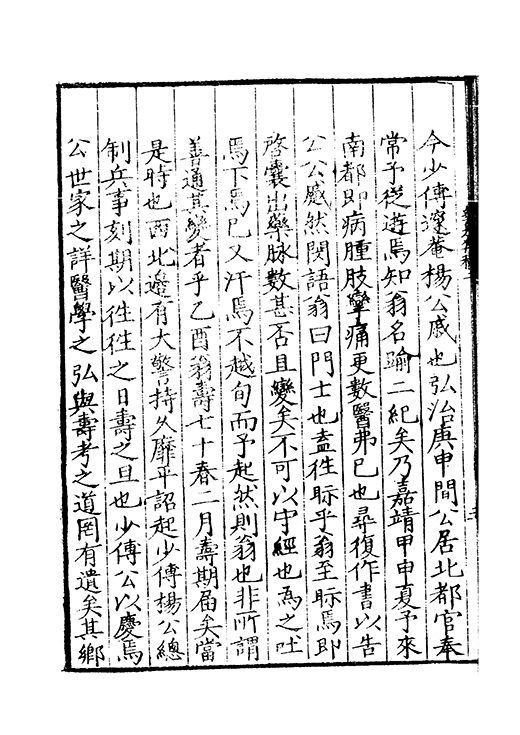 今少傅邃菴楊公戚也弘治庚申間公居北都官奉
常予從遊焉知翁名踰二紀矣乃嘉靖甲申夏予來
南都即病腫肢攣痛更數醫弗已也尋復作書以告
公公慼然閔語翁曰門士也盍徃眎乎翁至眎焉即
啓囊出藥脉數甚否且變矣不可以守經也為之吐
焉下焉已又汗焉不越旬而予起然則翁也非所謂
善通其變者乎乙酉翁壽七十春二月壽期屆矣當
是時也西北邊有大警持久靡平詔起少傅楊公總
制兵事刻期以徃徃之日壽之旦也少傅公以慶焉
公世家之詳醫學之弘與壽考之道罔有遺矣其鄉